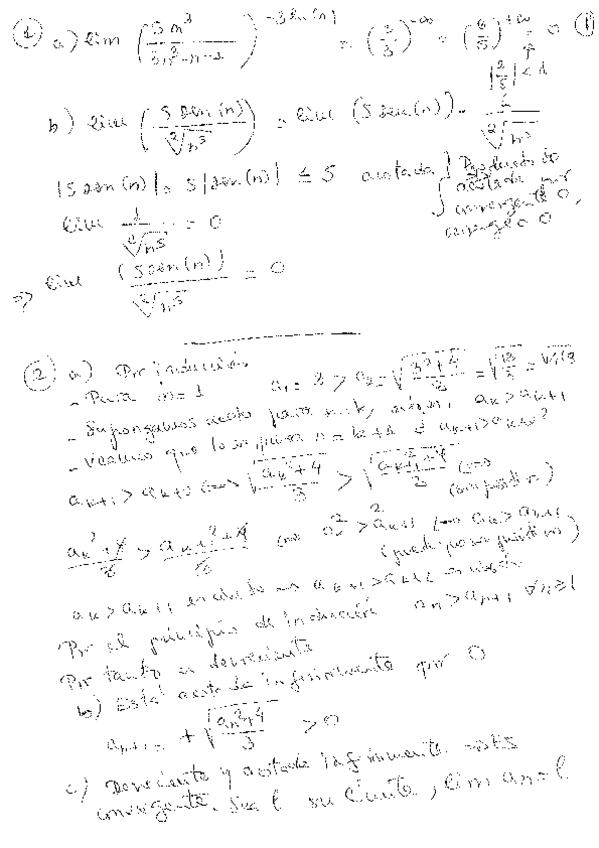 ① a) lim (5n³ / 3n³-n-1)^(-3 ln(n)) = (5/3)^(-∞) = (3/5)^(+∞) = 0
b) lim (5 sen(n) / ²√n³) = lim (5 sen(n)) · 1/²√n³
|5 sen(n)| = 5|sen(n)| ≤ 5 acotada } Producto de acotada por convergente 0, converge a 0
lim 1/²√n⁵ = 0
⇒ lim (5 sen(n)) / ²√n⁵ = 0
② a) Por inducción
- Para n=1 a₁ = 3 > a₂ = √(3²+4 / 3) = √(13/3)
- Supongamos cierto para n=k, aₖ > aₖ₊₁
- Veamos que lo es para n=k+1 ¿ aₖ₊₁ > aₖ₊₂?
aₖ₊₁ > aₖ₊₂ ⟺ √(aₖ²+4 / 3) > √(aₖ₊₁²+4 / 3) ⟺ (son positivos)
aₖ²+4 / 3 > aₖ₊₁²+4 / 3 ⟺ aₖ² > aₖ₊₁² ⟺ aₖ > aₖ₊₁ (puede por positivos)
aₖ > aₖ₊₁ es cierto ⟹ aₖ₊₁ > aₖ₊₂
Por el principio de inducción aₙ > aₙ₊₁ ∀n≥1
Por tanto es decreciente
b) Está acotada inferiormente por 0
aₙ₊₁ = +√(aₙ²+4 / 3) > 0
c) Decreciente y acotada inferiormente
convergente. Sea l su límite, lim aₙ = l